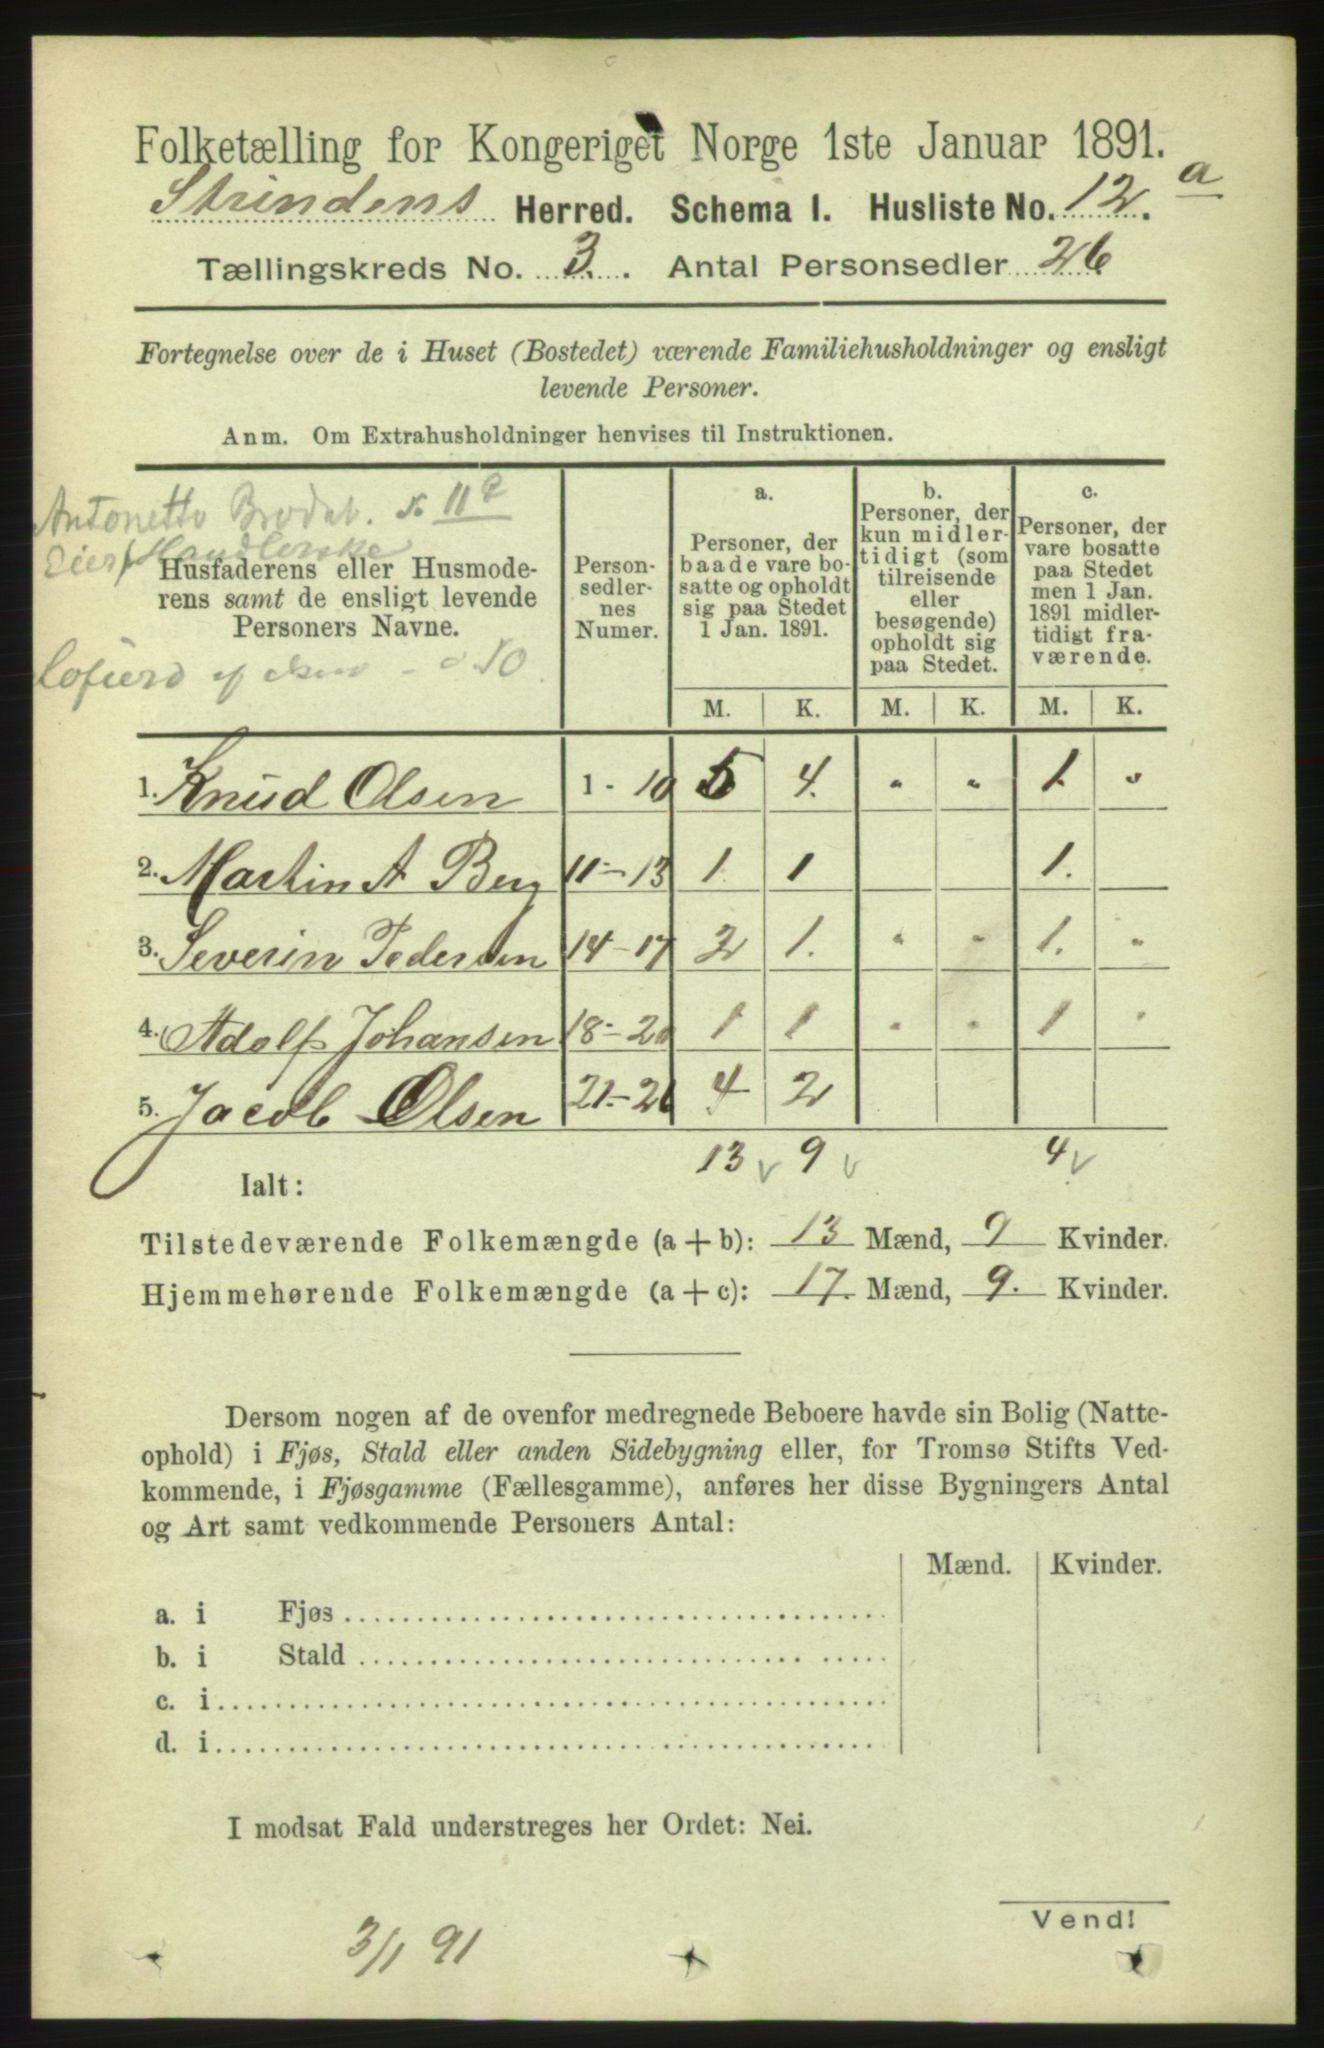 Folketælling for Kongeriget Norge 1ste Januar 1891.
Strindens Herred. Schema I. Husliste No. 12 a.
Tællingskreds No. 3. Antal Personsedler 26
Fortegnelse over de i Huset (Bostedet) værende Familiehusholdninger og ensligt
levende Personer.
Anm. Om Extrahusholdninger henvises til Instruktionen.
Antonette No 11
Eier Handlerske
Husfaderens eller Husmode-
rens samt de ensligt levende
Personers Navne.
10
Person-
sedler-
nes
Numer.
a.
Personer, der
baade vare bo-
satte og opholdt
sig paa Stedet
1 Jan. 1891.
b.
Personer, der
kun midler-
tidigt (som
tilreisende
eller
besøgende)
opholdt sig
paa Stedet.
c.
Personer, der
vare bosatte
paa Stedet
men 1 Jan.
1891 midler-
tidigt fra-
værende.
M. K. M. K. M. K.
1. Knud Olsen 1 - 10 5 4. " " 1. "
2. Martin A Berg 11 - 13 1 1 1.
3. Severin Pedersen 14 - 17 2 1. " " 1. "
4. Adolf Johansen 18 - 20 1 1 " " 1 "
5. Jacob Olsen 21 - 26 4 2
13 v 9 v 4 v
Ialt:
Tilstedeværende Folkemængde (a + b): 13 Mænd, 9 Kvinder.
Hjemmehørende Folkemængde (a + c): 17. Mænd, 9. Kvinder.
Dersom nogen af de ovenfor medregnede Beboere havde sin Bolig (Natte-
ophold) i Fjøs, Stald eller anden Sidebygning eller, for Tromsø Stifts Ved-
kommende, i Fjøsgamme (Fællesgamme), anføres her disse Bygningers Antal
og Art samt vedkommende Personers Antal:
Mænd. Kvinder.
a. i Fjøs
b. i Stald
c. i
d. i
I modsat Fald understreges her Ordet: Nei.
Vend!
3/1 91